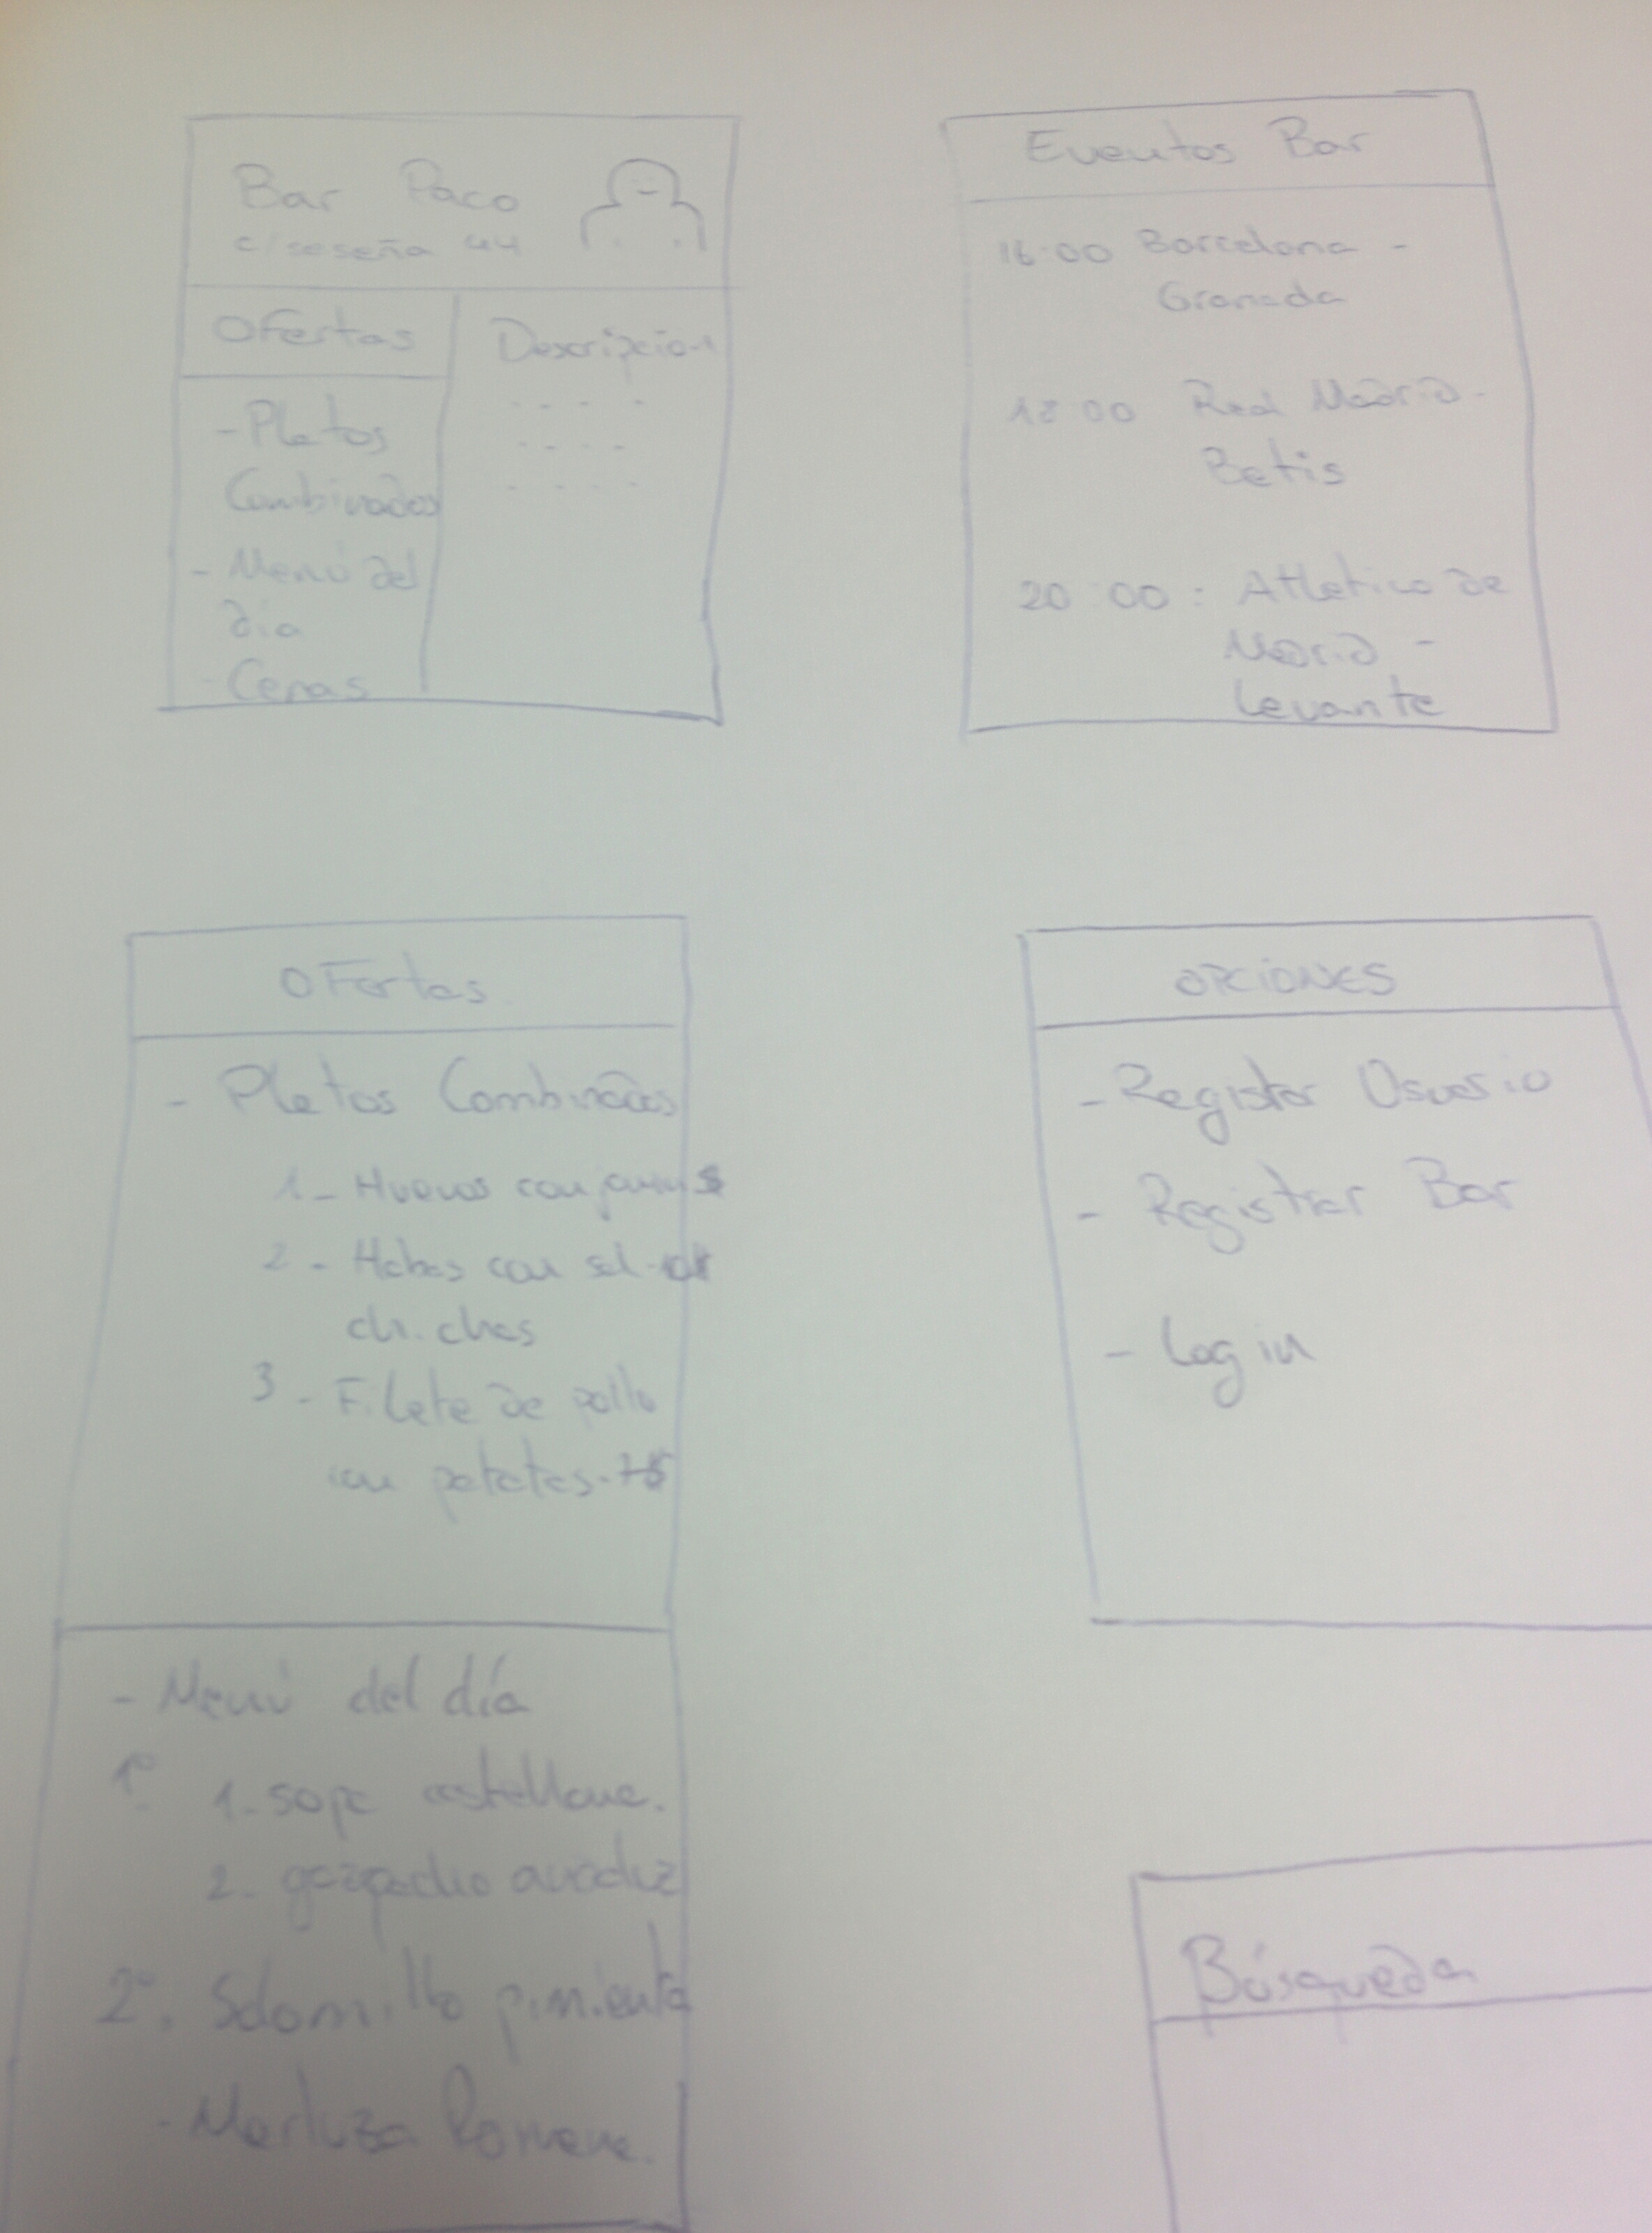 Bar Paco
c/seseña 44
Ofertas
Descripcion
- Platos
Combinados
- Menú del
día
- Cenas
Eventos Bar
16:00 Barcelona -
Granada
18:00 Real Madrid -
Betis
20:00: Atletico de
Madrid -
Levante
Ofertas
- Platos Combinados
1 - Huevos con
2 - Habas con sal
chichas
3 - Filete de pollo
con patatas.
- Menú del día
1º 1. sopa castellana.
2. gazpacho
2º. Solomillo pimienta
- Merluza Romana.
OPCIONES
- Registar Usuario
- Registrar Bar
- Login
Búsqueda